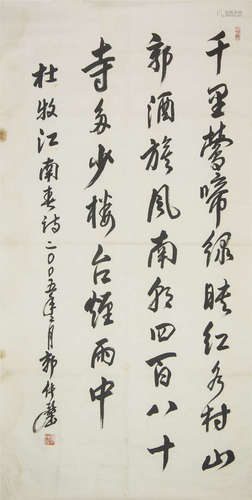 千里鶯啼绿映红水村山
郭酒旗风南朝四百八十
寺多少楼台煙雨中
杜牧江南春诗二〇〇五年月郭